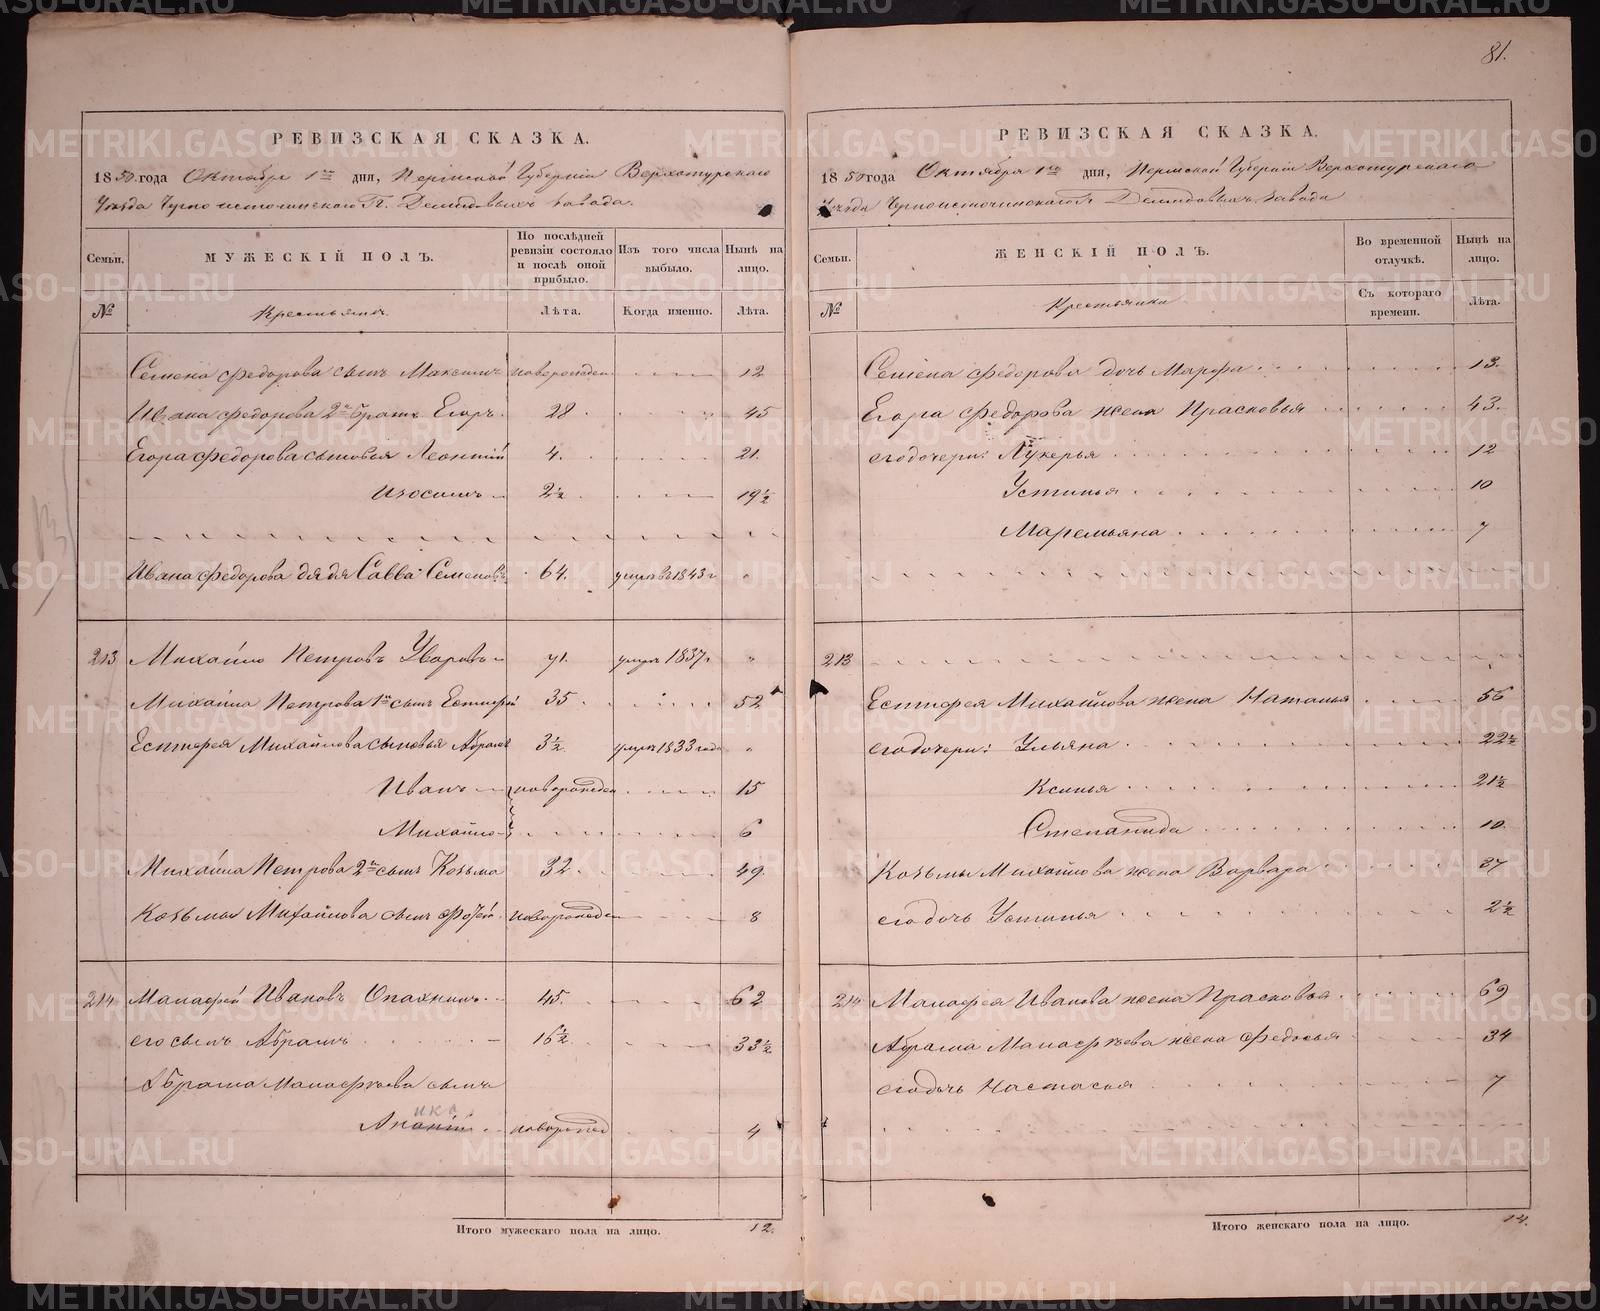 81.
РЕВИЗСКАЯ СКАЗКА.
1850 года Октября 1го дня, Пермской Губернии Верхотурскаго
Уезда Черноисточинскаго Г.г. Демидовыхъ Завода.
Семьи. МУЖЕСКІЙ ПОЛЪ. По послѣдней ревизіи состояло и послѣ оной прибыло. Изъ того числа выбыло. Нынѣ на лицо.
№ Крестьяне. Лѣта. Когда именно. Лѣта.
Семена Федорова сынъ Максимъ новорожден 12
Ивана Федорова 2й братъ Егоръ 28 45
Егора Федорова сыновья Леонтій 4. 21.
Изосимъ 2½ 19½
Ивана Федорова дядя Савва Семеновъ 64. умръ въ 1843 г
213 Михайло Петровъ Уваровъ 71. умръ 1837 г
Михайла Петрова 1й сынъ Естифей 35 52
Естифея Михайлова сыновья Абрамъ 3½ умръ 1833 года
Иванъ новорожден 15
Михайло 6
Михайла Петрова 2й сынъ Козьма 32 49
Козьмы Михайлова сынъ Фотей новорожден 8
214 Манафей Ивановъ Опахинъ 45. 62
его сынъ Абрамъ 16½ 33½
Абрама Манафѣева сынъ
ика
Ананій новорожд 4
Итого мужескаго пола на лицо. 12.
РЕВИЗСКАЯ СКАЗКА.
1850 года Октября 1го дня, Пермской Губерніи Верхотурскаго
Уезда Черноисточинскаго Г.г. Демидовыхъ Завода
Семьи. ЖЕНСКІЙ ПОЛЪ. Во временной отлучкѣ. Нынѣ на лицо.
№ Крестьянки Съ котораго времени. Лѣта.
Семена Федорова дочь Марфа 13.
Егора Федорова жена Прасковья 43.
его дочери: Лукерья 12
Устинья 10
Маремьяна 7
213
Естифея Михайлова жена Наталья 56
его дочери: Ульяна 22½
Ксинья 21½
Степанида 10
Козьмы Михайлова жена Варвара 37
его дочь Устинья 2½
214 Манафея Иванова жена Прасковья 69
Абрама Манафѣева жена Федосья 34
его дочь Настасья 7
Итого женскаго пола на лицо. 14.
METRIKI.GASO-URAL.RU